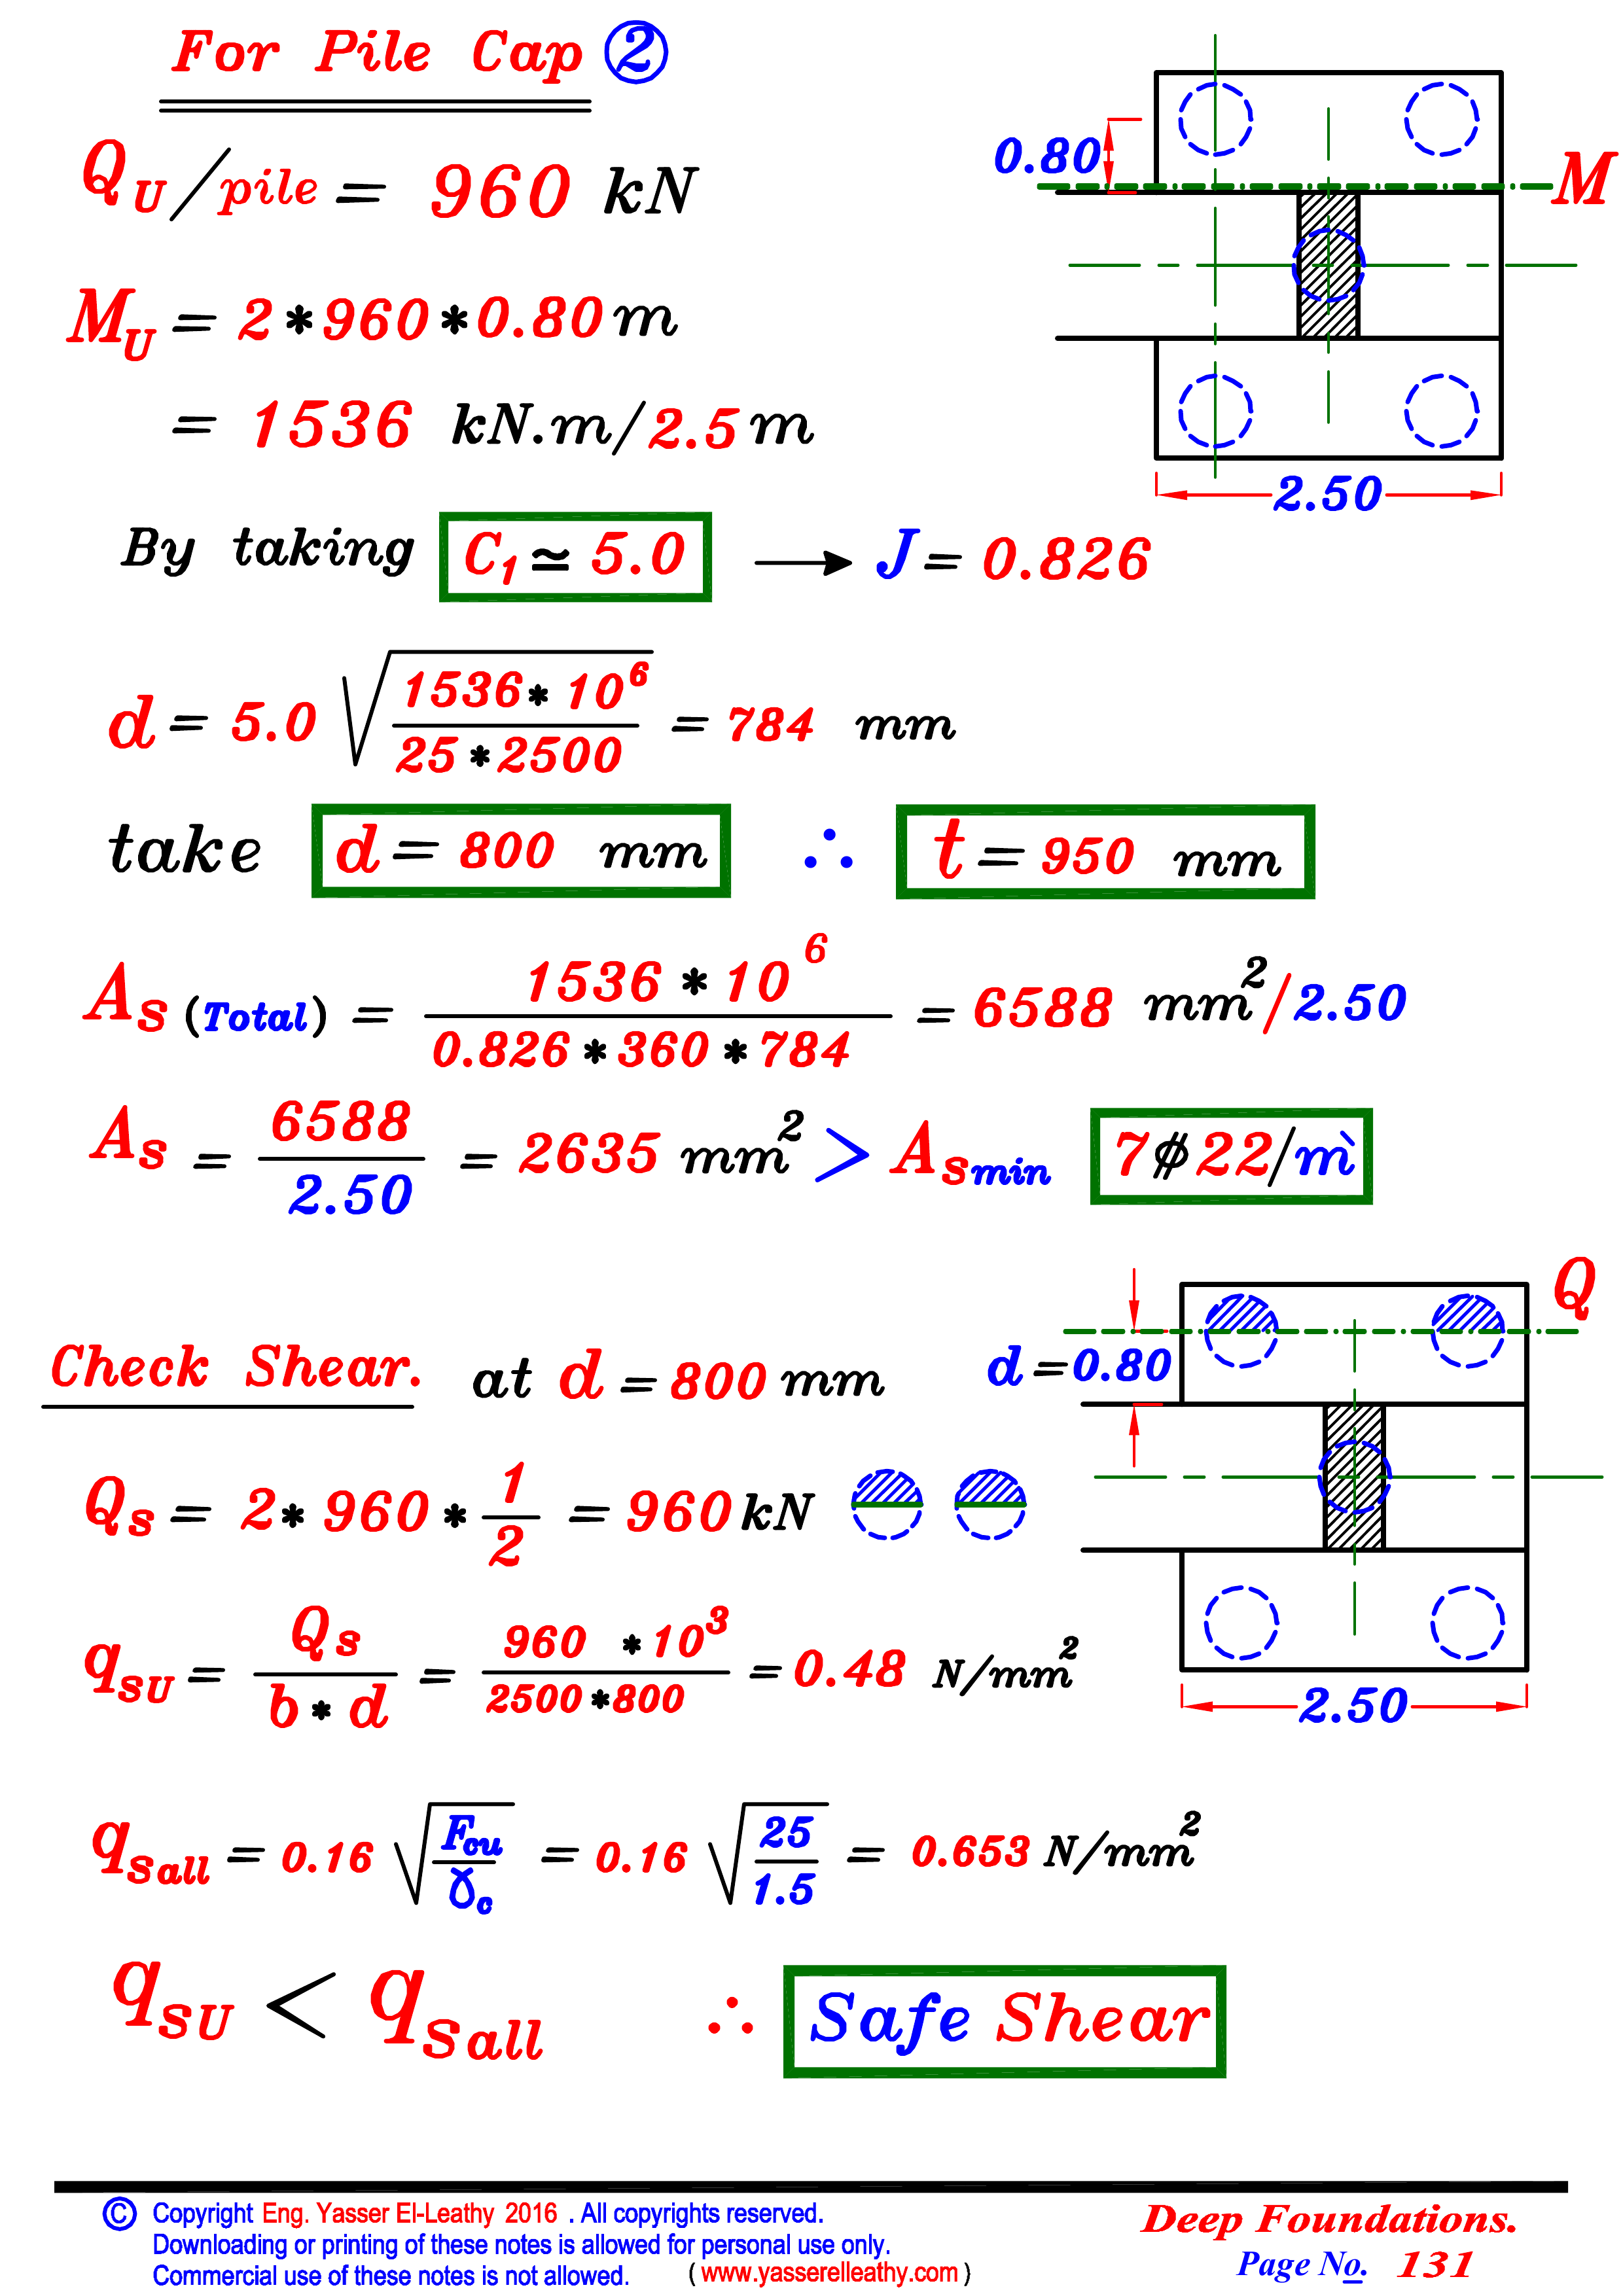 For Pile Cap ②
Q_U/pile = 960 kN
0.80
M
M_U = 2*960*0.80 m
= 1536 kN.m/2.5 m
2.50
By taking C₁ ≃ 5.0 → J = 0.826
d = 5.0 √(1536*10⁶ / 25*2500) = 784 mm
take d = 800 mm ∴ t = 950 mm
A_s (Total) = 1536*10⁶ / 0.826*360*784 = 6588 mm²/2.50
A_s = 6588 / 2.50 = 2635 mm² > A_s min 7⌀22/m̀
Q
Check Shear. at d = 800 mm
d = 0.80
Q_s = 2*960*1/2 = 960 kN
q_sU = Q_s / b*d = 960*10³ / 2500*800 = 0.48 N/mm²
2.50
q_s all = 0.16 √(F_cu / γ_c) = 0.16 √(25 / 1.5) = 0.653 N/mm²
q_sU < q_s all ∴ Safe Shear
© Copyright Eng. Yasser El-Leathy 2016 . All copyrights reserved.
Downloading or printing of these notes is allowed for personal use only.
Commercial use of these notes is not allowed. ( www.yasserelleathy.com )
Deep Foundations.
Page No. 131